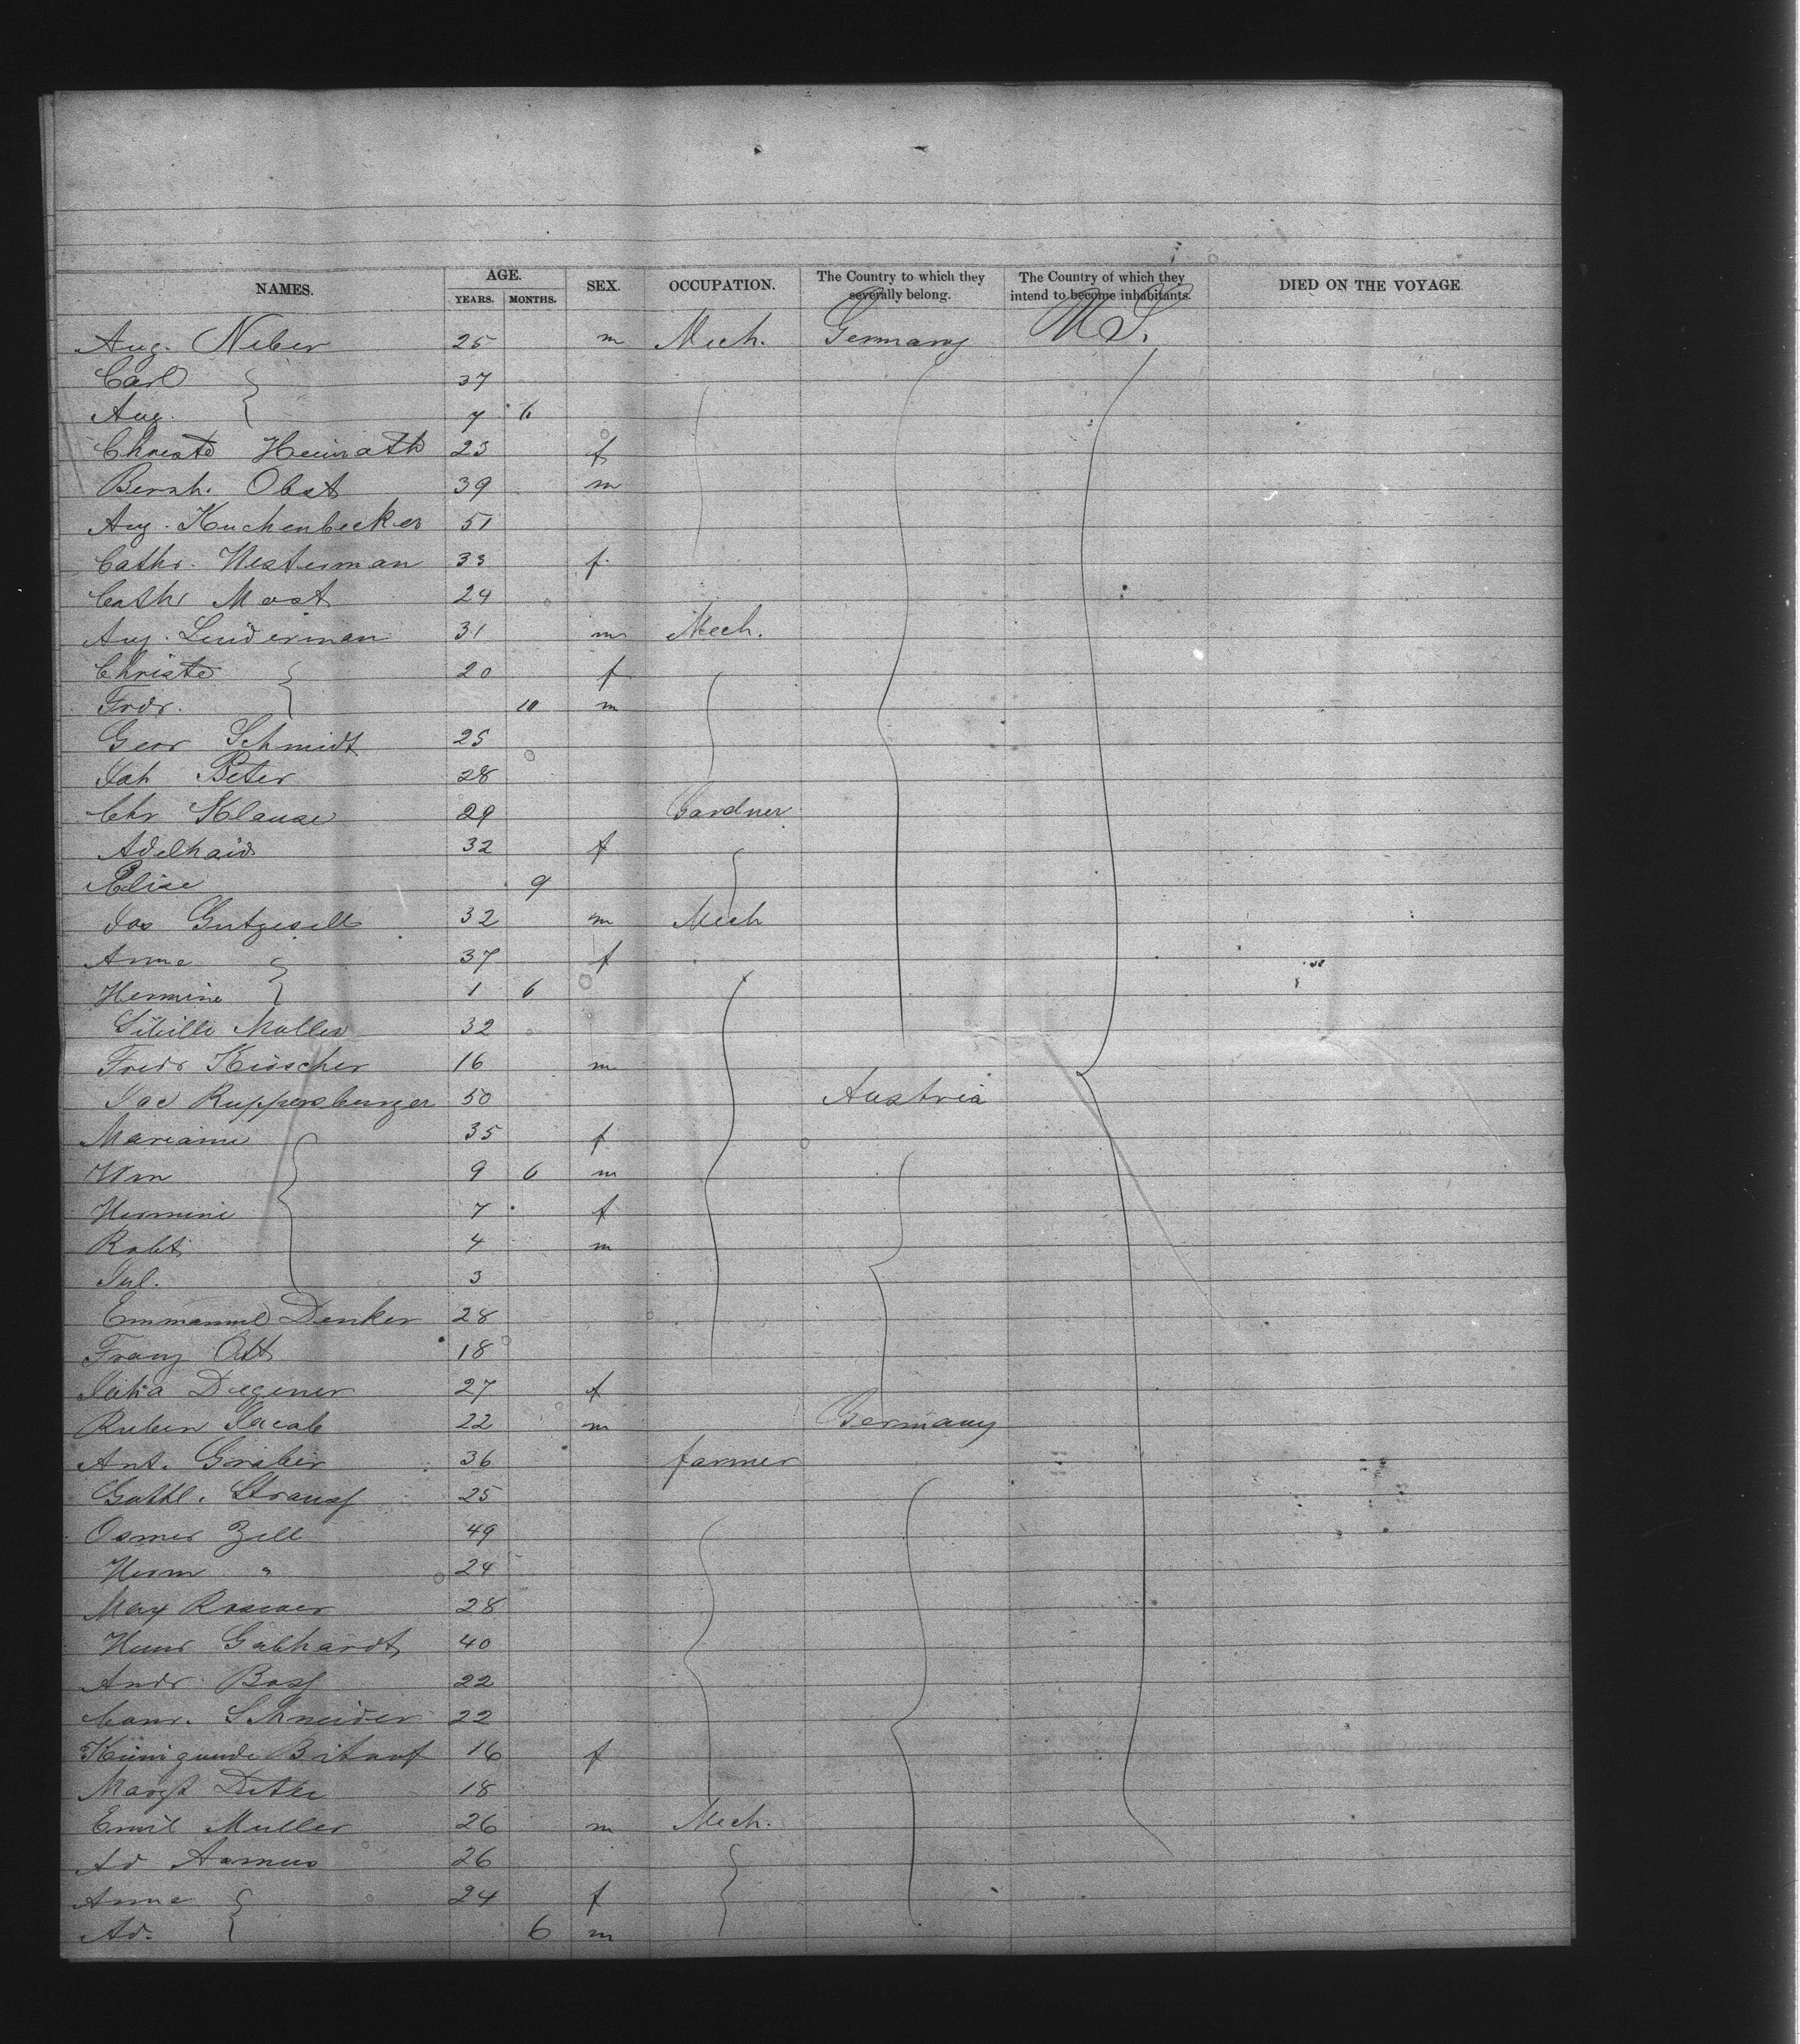 NAMES. AGE. YEARS. MONTHS. SEX. OCCUPATION. The Country to which they severally belong. The Country of which they intend to become inhabitants. DIED ON THE VOYAGE
Aug. Niber 25 m Mech. Germany U.S.
Carl 37
Aug. 7 6
Christe Heinrath 23 f
Bernh. Obst 39 m
Aug. Kuchenbecker 51
Cathr. Westerman 33 f
Cathr Mast 24
Aug. Linderman 31 m Mech.
Christe 20 f
Fror. 10 m
Geor Schmidt 25
Joh Peter 28
Chr Klause 29 Gardner
Adelhaid 32 f
Elise 9
Jos Gutgesell 32 m Mech
Anna 37 f
Hermine 1 6
Muller 32
Fredr Kirscher 16 m
Jac Ruppersberger 50 Austria
Mariane 35 f
Wm 9 6 m
Hermine 7 f
Robt 4 m
Jul. 3
Emmanuel Denker 28
Franz Ott 18
Degener 27 f
Ruben Jacob 22 m Germany
Ant. Graber 36 farmer
Gottl. Strauss 25
Osmer Zell 49
Herm " 24
Max 28
Heinr Gebhardt 40
Andr Bass 22
Conr. Schneider 22
Kunigunde 16 f
Margt 18
Emil Muller 26 m Mech.
Ad Asmus 26
Anna 24 f
Ad. 6 m